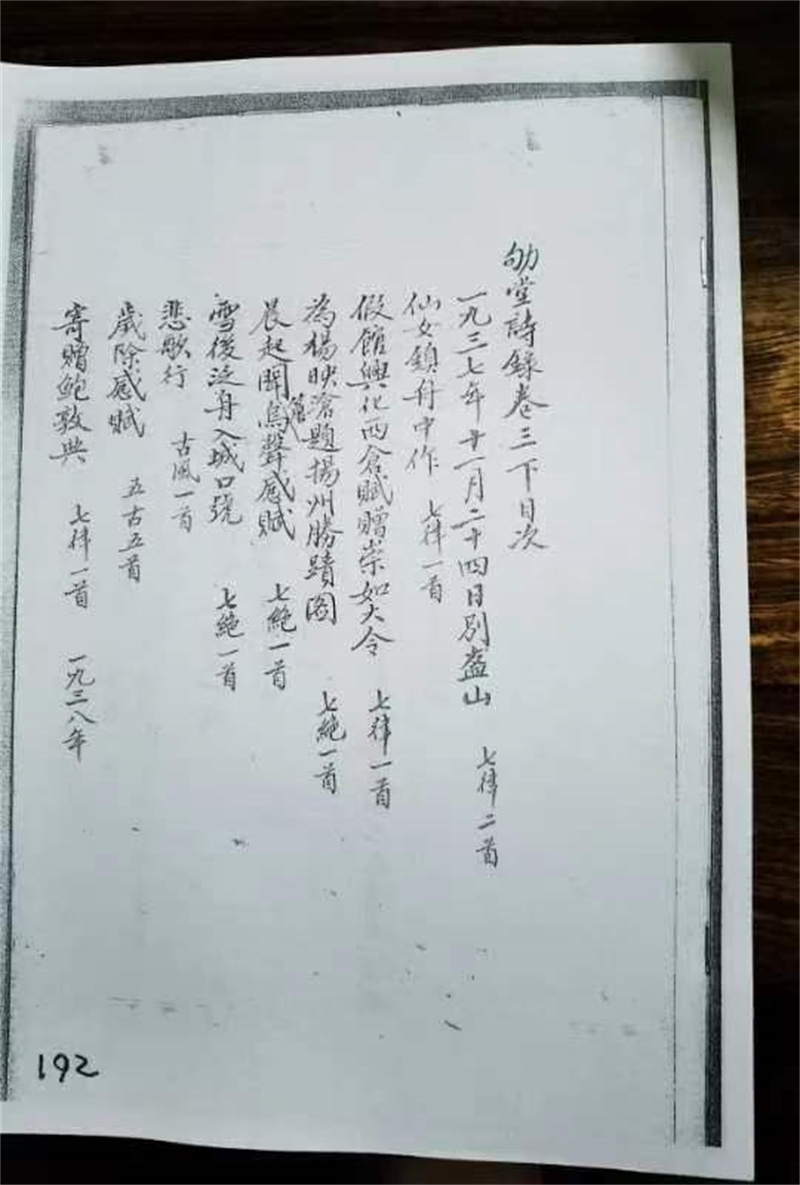 劬堂詩録卷三下目次
一九三七年十一月二十四日別盔山 七律二首
仙女鎮舟中作 七律一首
假館興化西倉賦贈崇如大令 七律一首
為楊映滄題揚州勝蹟圖 七絶一首
晨起聞鳥聲感賦 七絶一首
雪後泛舟入城口號 七絶一首
悲歌行 古風一首
歲除感賦 五古五首
寄贈鮑敦典 七律一首 一九三八年
192